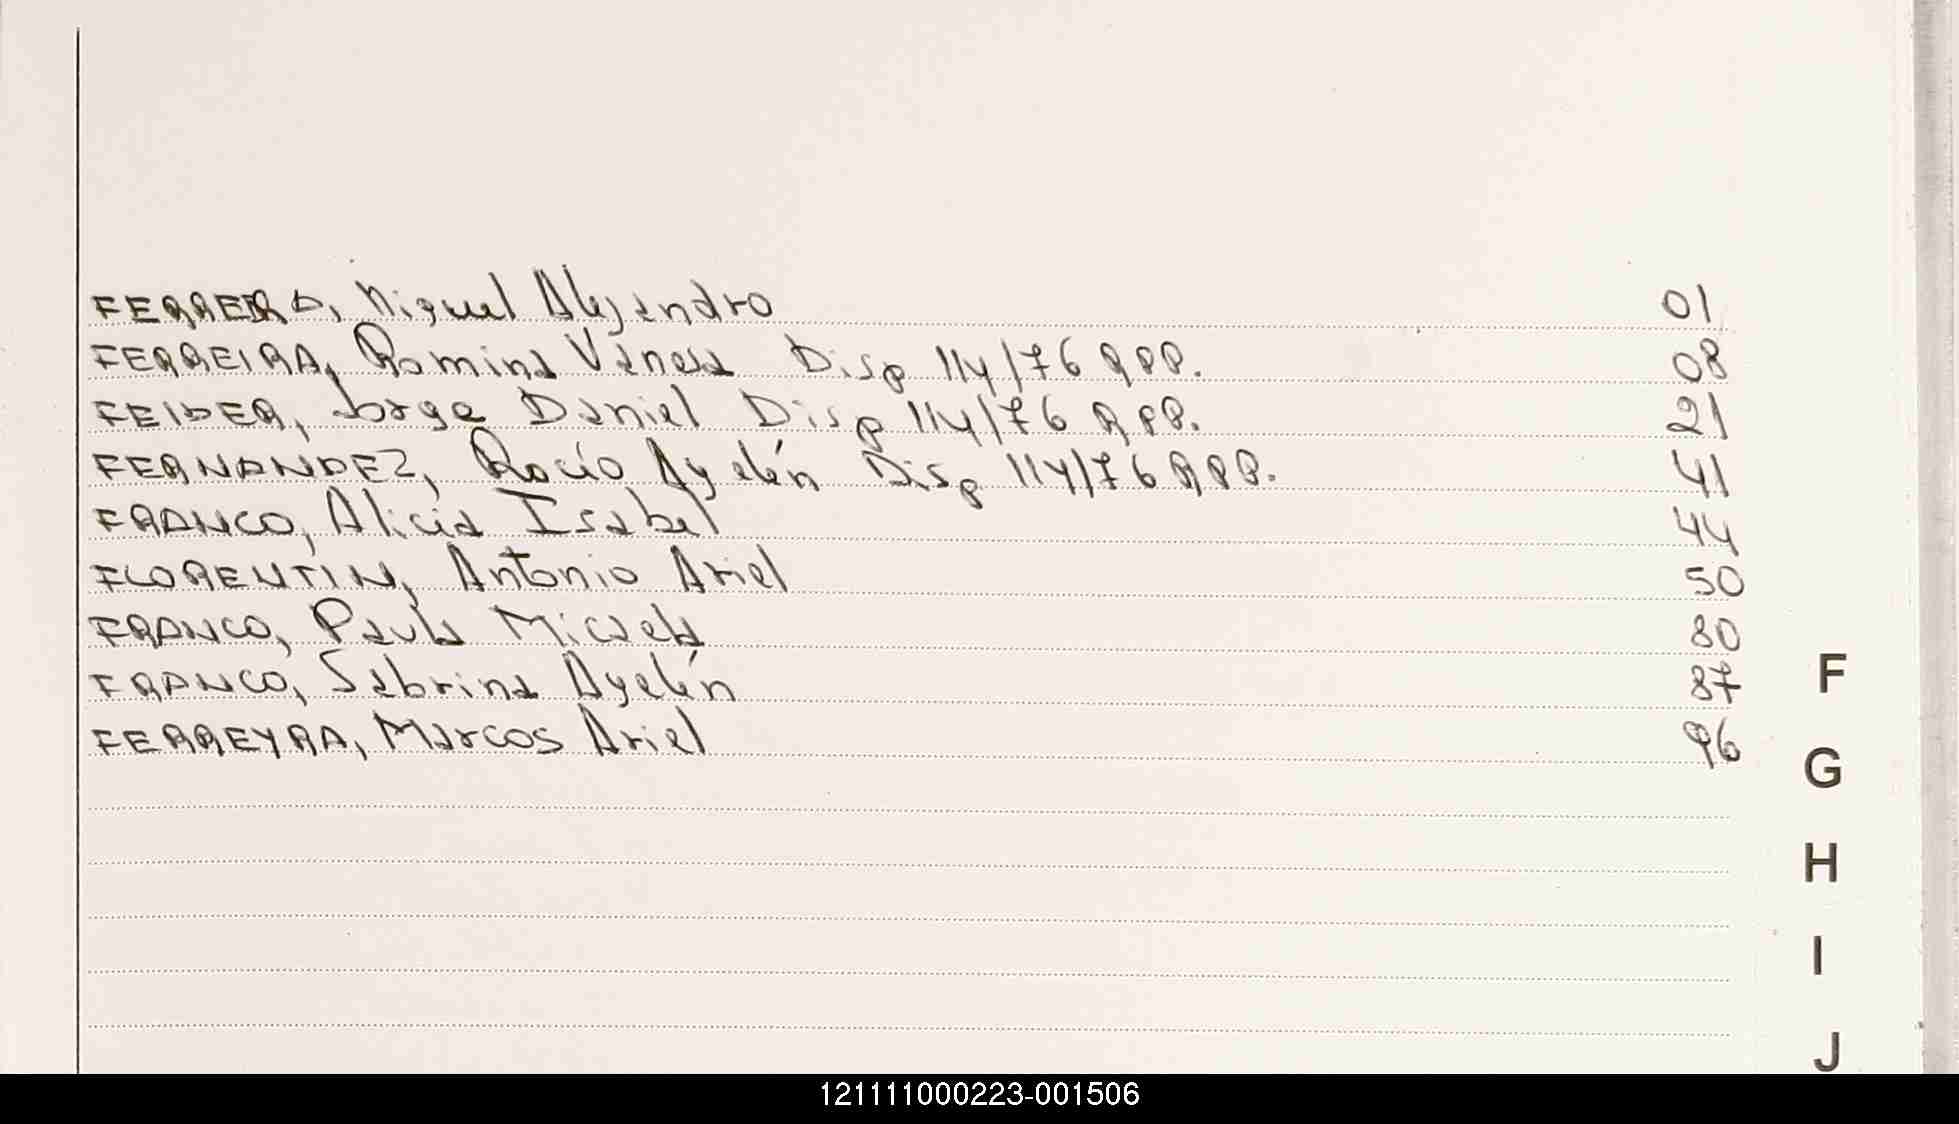 FERRERO, Miguel Alejandro 01
FERREIRA, Romina Vanesa Disp 114/76 RPP. 08
FEIDER, Jorge Daniel Disp 114/76 RPP. 21
FERNANDEZ, Rocío Ayelén Disp 114/76 RPP. 41
FRANCO, Alicia Isabel 44
FLORENTIN, Antonio Ariel 50
FRANCO, Paula Micaela 80
FRANCO, Sabrina Ayelén 87
FERREYRA, Marcos Ariel 96
F
G
H
I
J
121111000223-001506